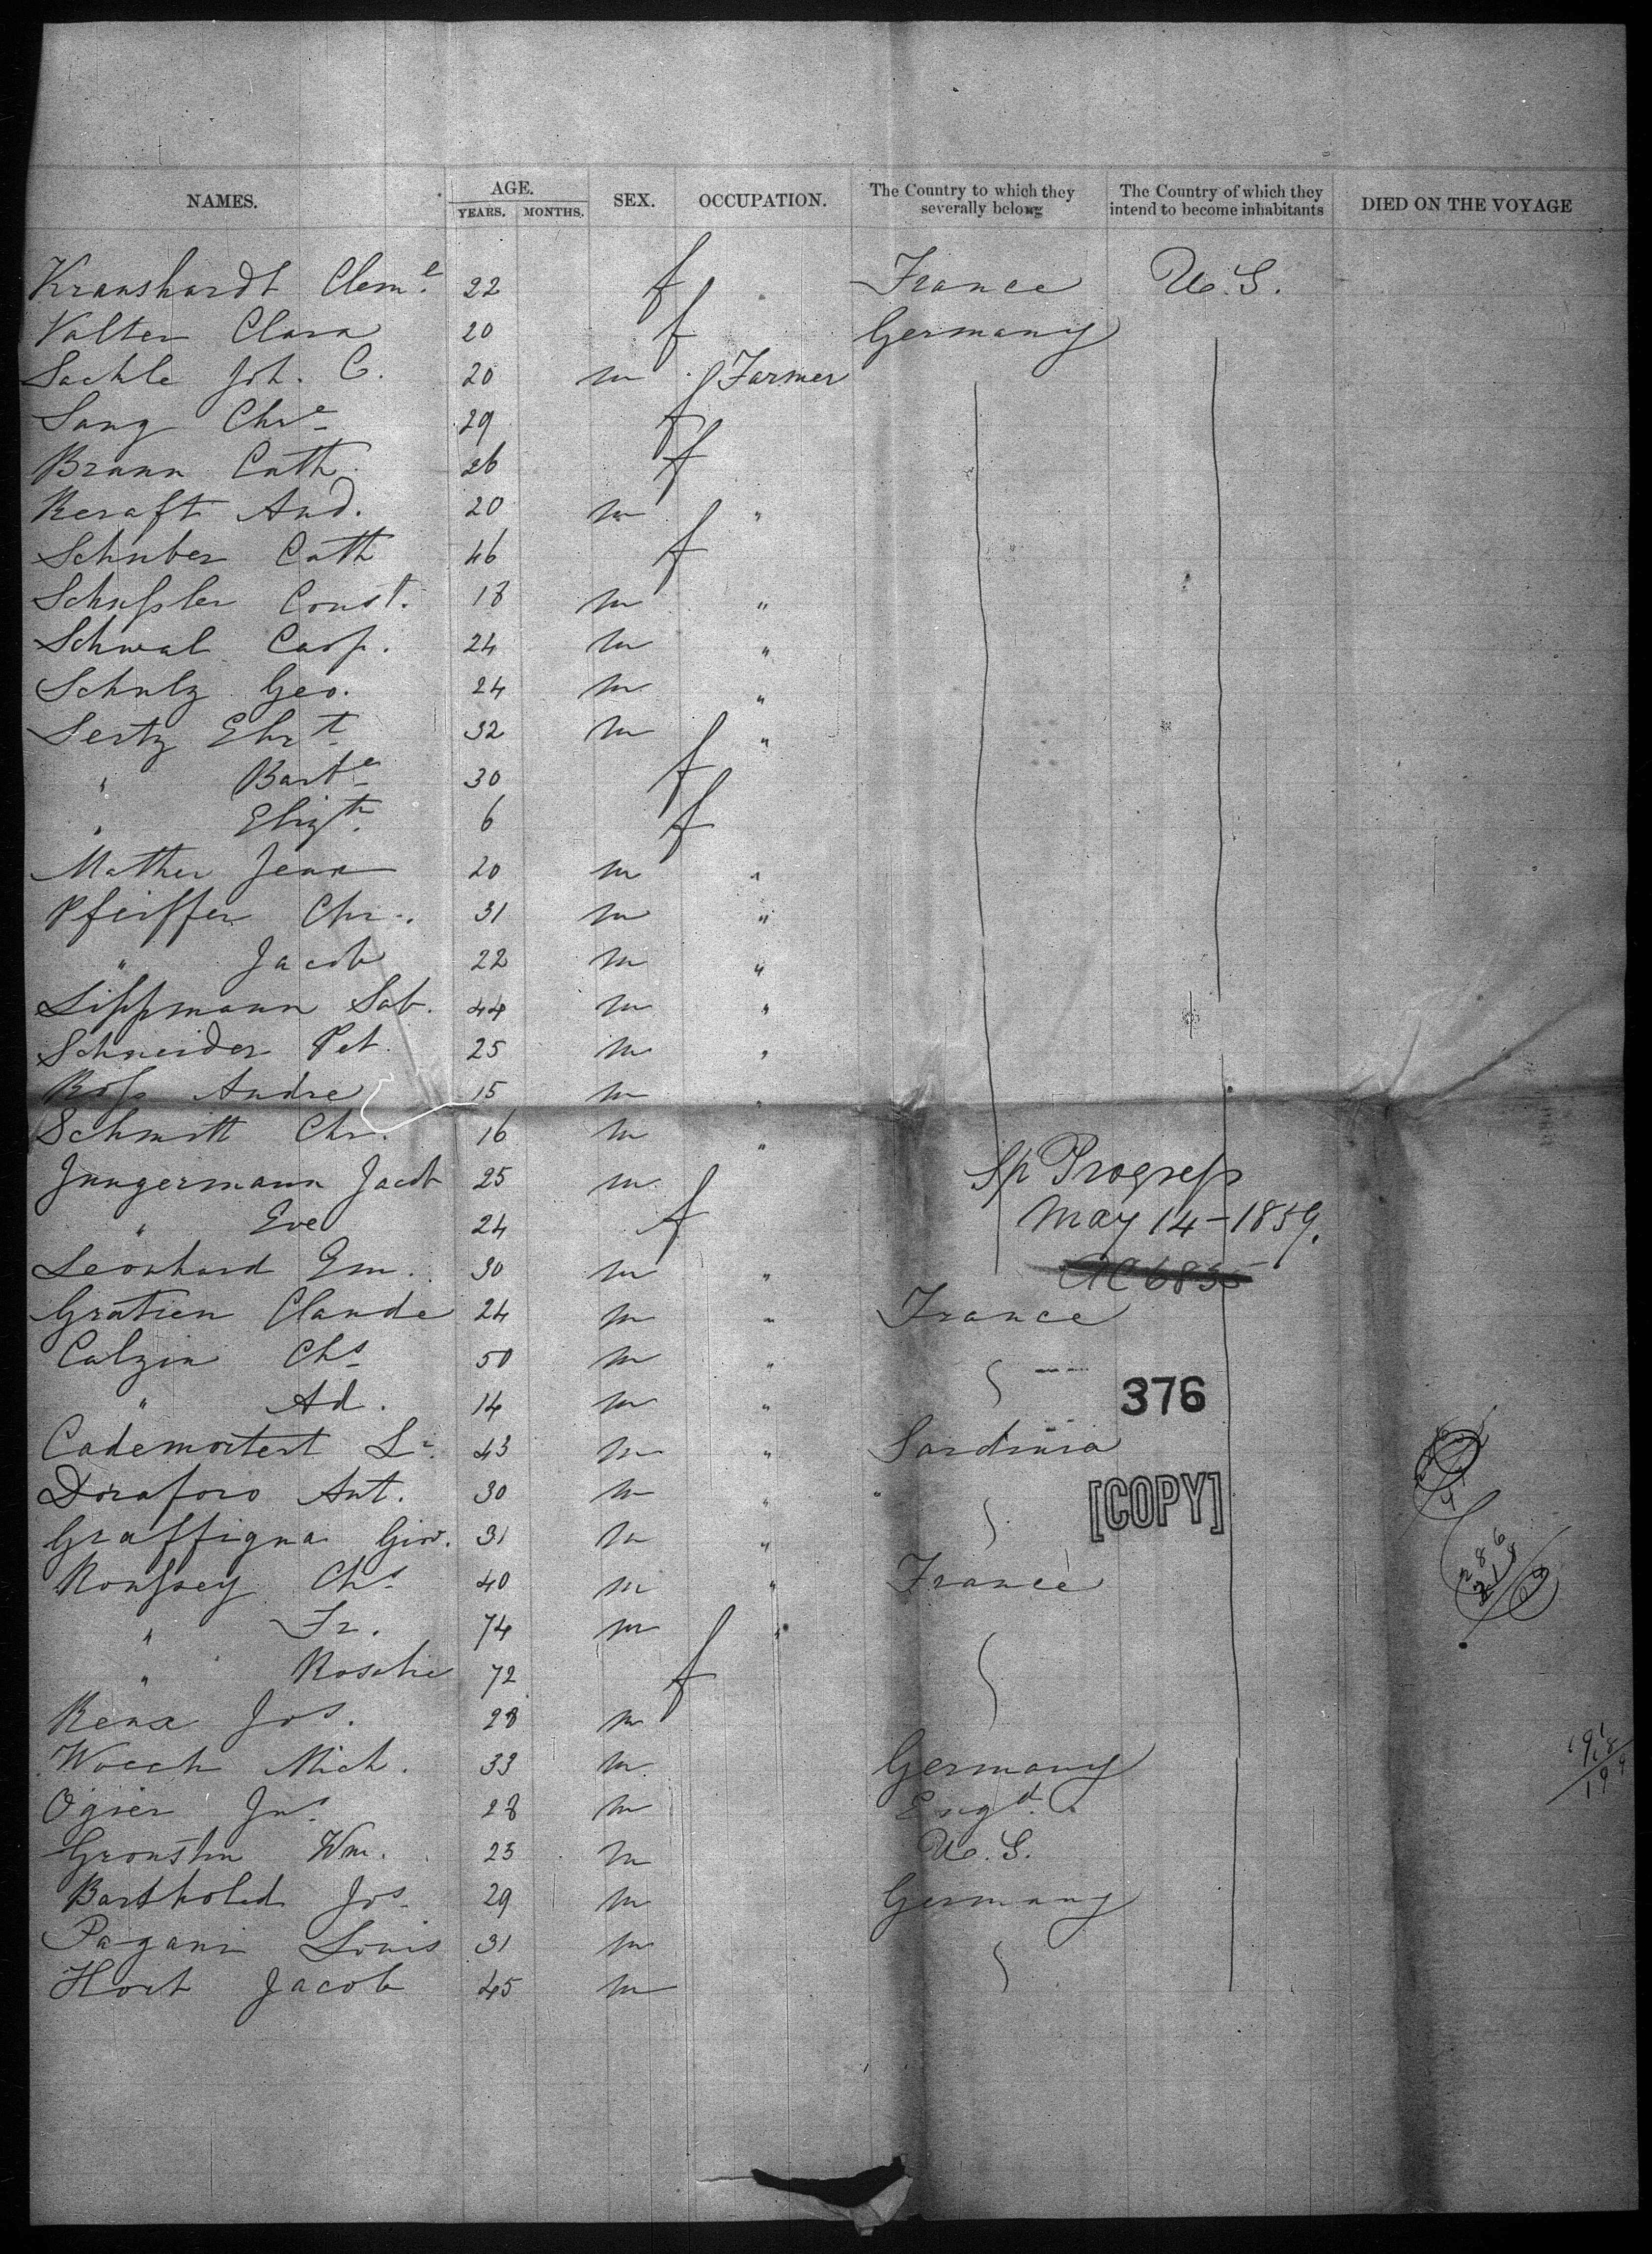 NAMES. AGE. YEARS. MONTHS. SEX. OCCUPATION. The Country to which they severally belong The Country of which they intend to become inhabitants DIED ON THE VOYAGE
Kranshardt Clem.e 22 f France U.S.
Valter Clara 20 f Germany
Sachle Joh. C. 20 m Farmer
Sang Chre 29 f
Braun Cath. 26 f
Kraft And. 20 m "
Schuber Cath 46 f
Schussler Const. 18 m "
Schwal Casp. 24 m "
Schulz Geo. 24 m "
Sertz Ehrt 32 m "
" Barbe 30 f
" Elizth. 6 f
Mather Jean 20 m "
Pfeiffer Chr. 31 m "
" Jacob 22 m "
Lippmann Sab. 44 m "
Schneider Pet. 25 m "
Ross Andre 15 m "
Schmitt Chr. 16 m "
Jungermann Jacob 25 m
" Eve 24 f
Sp Progress
May 14-1859.
Leonhard Em. 30 m "
Gratien Claude 24 m " France
Calzin Chs 50 m "
" Ad. 14 m "
376
Cademartert L. 43 m " Sardinia
Ant. 30 m " "
[COPY]
Graffigna Giov. 31 m "
Chs 40 m " France
" Fr. 74 m "
" Rosalie 72 f
Jos. 28 m
Mich. 33 m Germany
Ogier Jns. 28 m Engd.
Wm. 23 m U.S.
Barthold Jos 29 m Germany
Pagani Louis 31 m
Hort Jacob 45 m